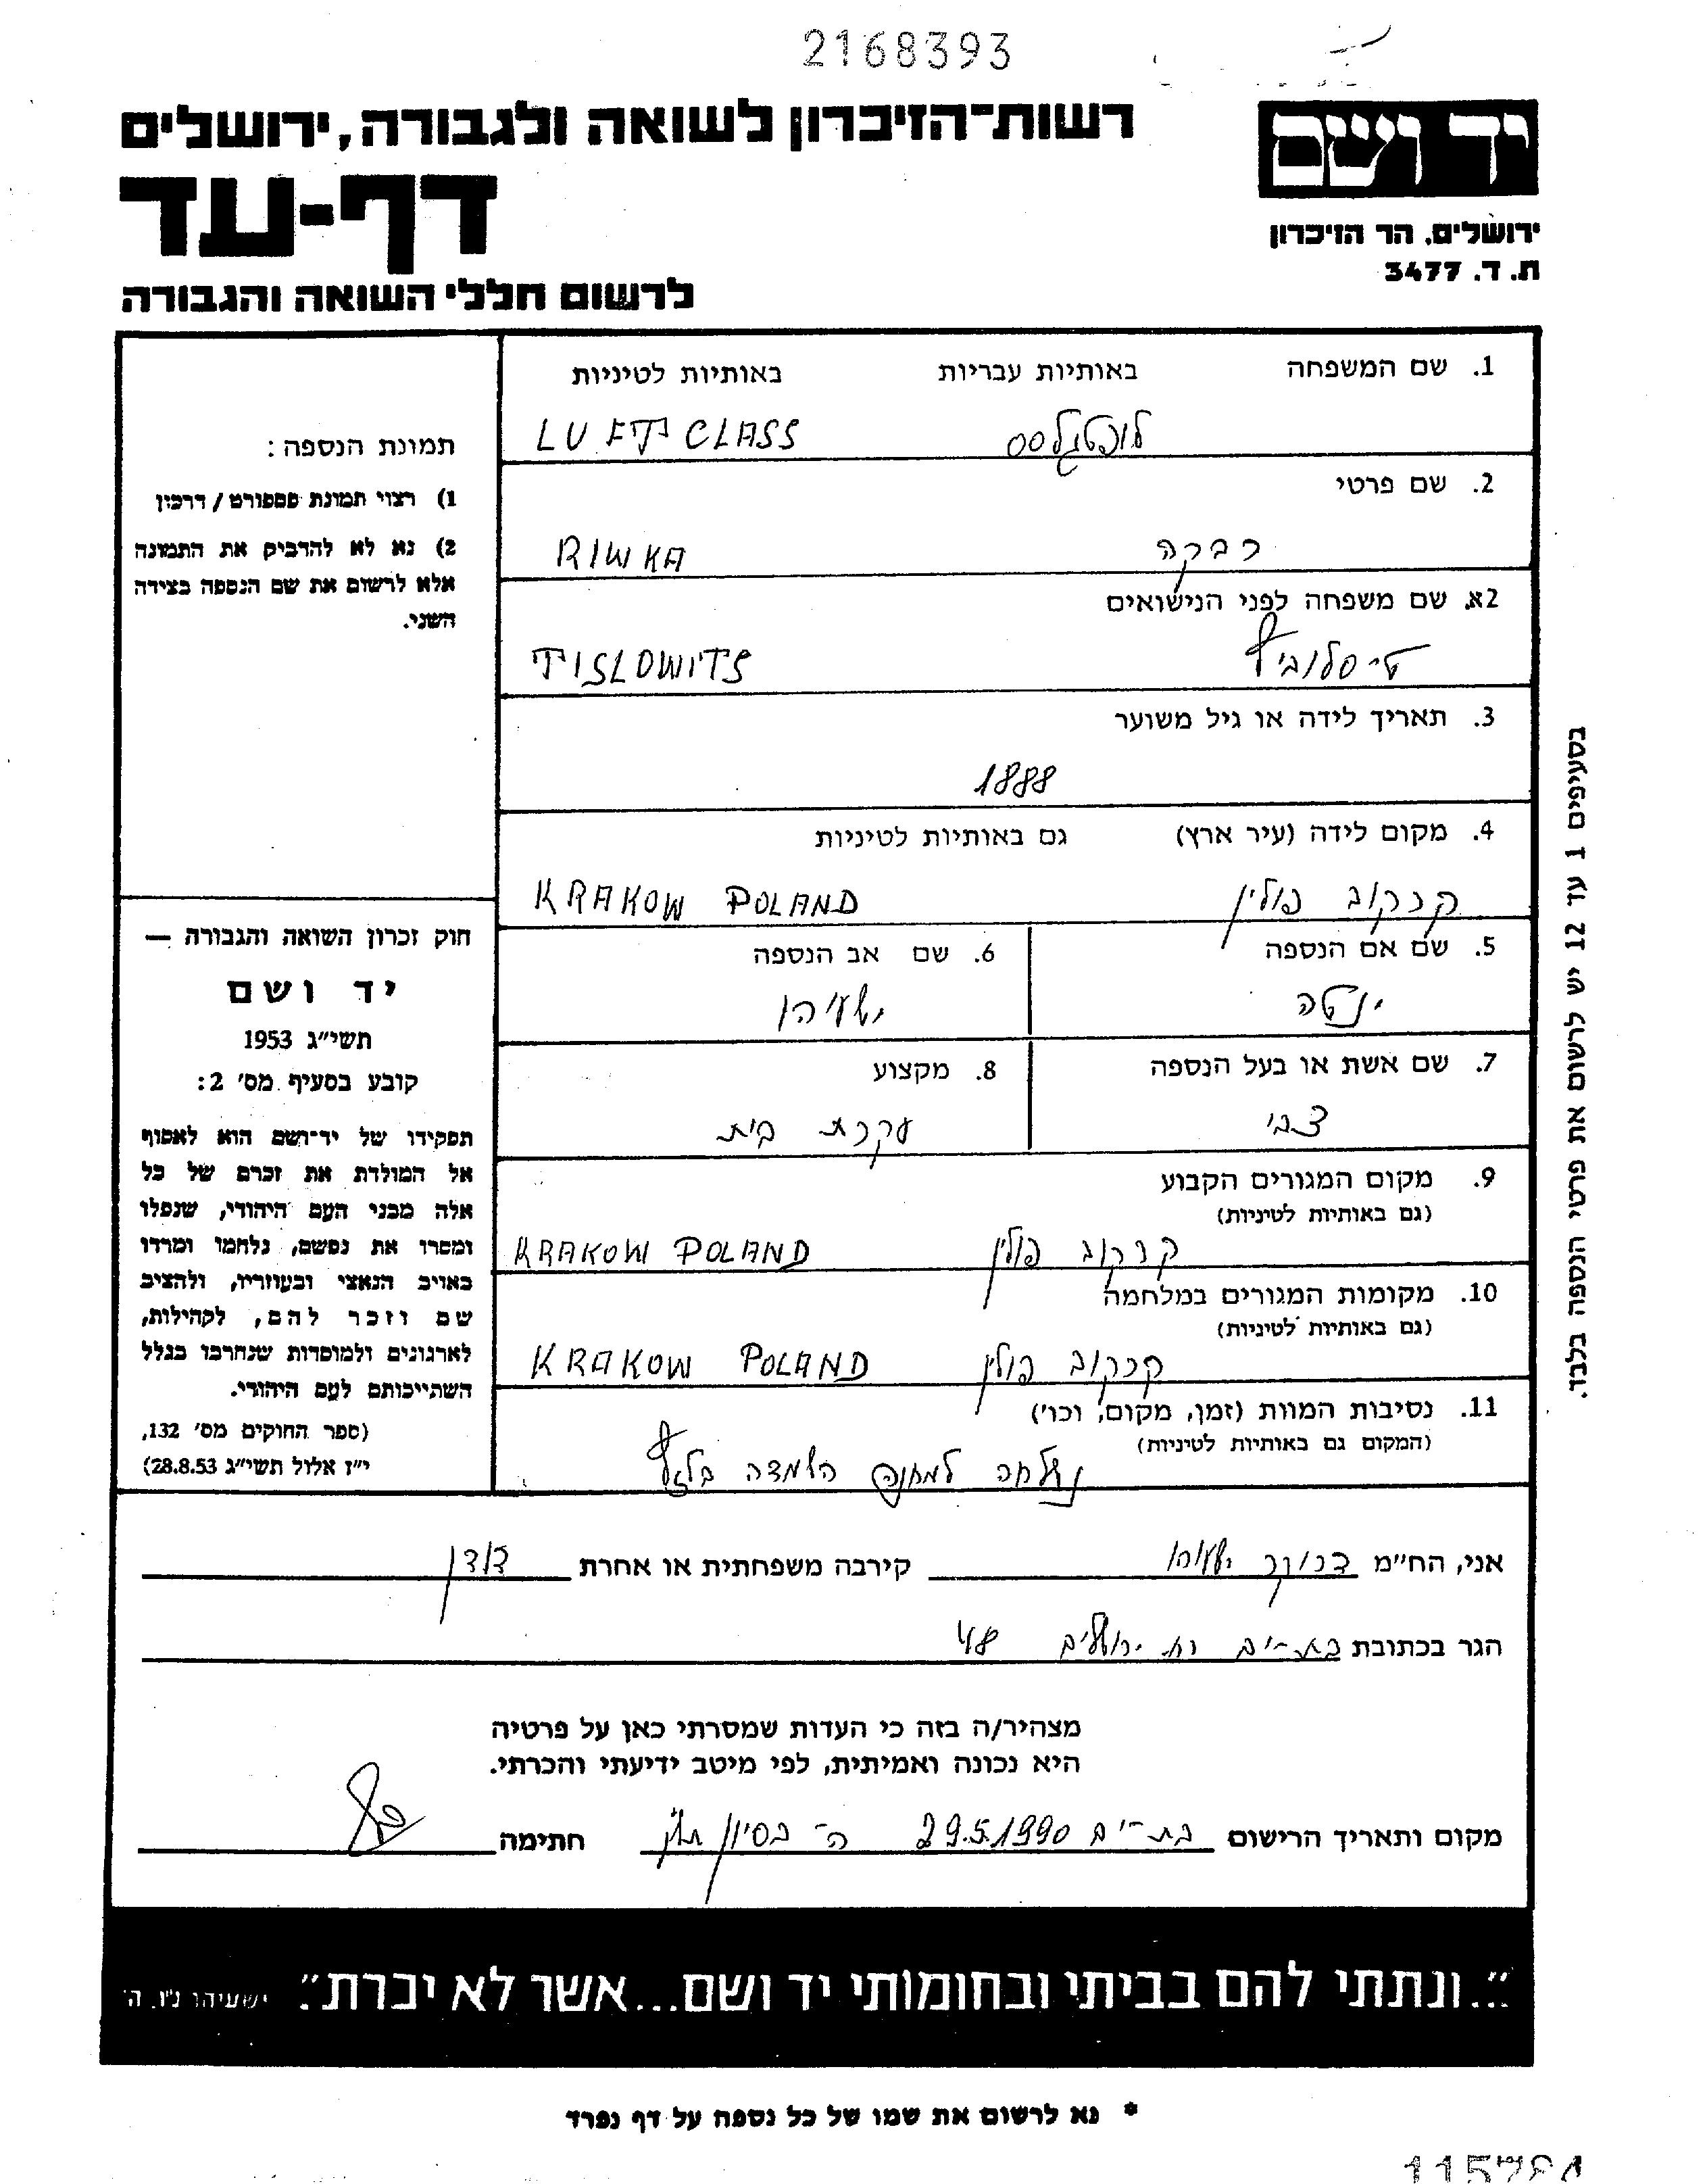 2168393
יד ושם
ירושלים. הר הזיכרון
ת. ד. 3477
רשות־הזיכרון לשואה ולגבורה, ירושלים
דף-עד
לרשום חללי השואה והגבורה
1. שם המשפחה באותיות עבריות באותיות לטיניות
לופטגלסס LUFT CLASS
2. שם פרטי
רבקה RIWKA
2א. שם משפחה לפני הנישואים
טיסלוביץ TISLOWITS
3. תאריך לידה או גיל משוער
1888
4. מקום לידה (עיר ארץ) גם באותיות לטיניות
קרקוב פולין KRAKOW POLAND
5. שם אם הנספה 6. שם אב הנספה
ינטה ישעיהו
7. שם אשת או בעל הנספה 8. מקצוע
צבי עקרת בית
9. מקום המגורים הקבוע
(גם באותיות לטיניות)
קרקוב פולין KRAKOW POLAND
10. מקומות המגורים במלחמה
(גם באותיות לטיניות)
קרקוב פולין KRAKOW POLAND
11. נסיבות המוות (זמן, מקום, וכו')
(המקום גם באותיות לטיניות)
נשלחה למחנה השמדה בלזץ
תמונת הנספה:
1) רצוי תמונת פספורט / דרכון
2) נא לא להדביק את התמונה
אלא לרשום את שם הנספה בצידה
השני.
חוק זכרון השואה והגבורה —
יד ושם
תשי״ג 1953
קובע בסעיף מס' 2:
תפקידו של יד־ושם הוא לאסוף
אל המולדת את זכרם של כל
אלה מבני העם היהודי, שנפלו
ומסרו את נפשם, נלחמו ומרדו
באויב הנאצי ובעוזריו, ולהציב
שם וזכר להם, לקהילות,
לארגונים ולמוסדות שנחרבו בגלל
השתייכותם לעם היהודי.
(ספר החוקים מס' 132,
י״ז אלול תשי״ג 28.8.53)
בסעיפים 1 עד 12 יש לרשום את פרטי הנספה בלבד.
אני, הח״מ ישעיהו קירבה משפחתית או אחרת
הגר בכתובת בת-ים רח ירושלים 48
מצהיר/ה בזה כי העדות שמסרתי כאן על פרטיה
היא נכונה ואמיתית, לפי מיטב ידיעתי והכרתי.
מקום ותאריך הרישום בת-ים 29.5.1990 ה- בסיון חתימה
״...ונתתי להם בביתי ובחומותי יד ושם...אשר לא יכרת״. ישעיהו נ״ו. ה'
* נא לרשום את שמו של כל נספה על דף נפרד